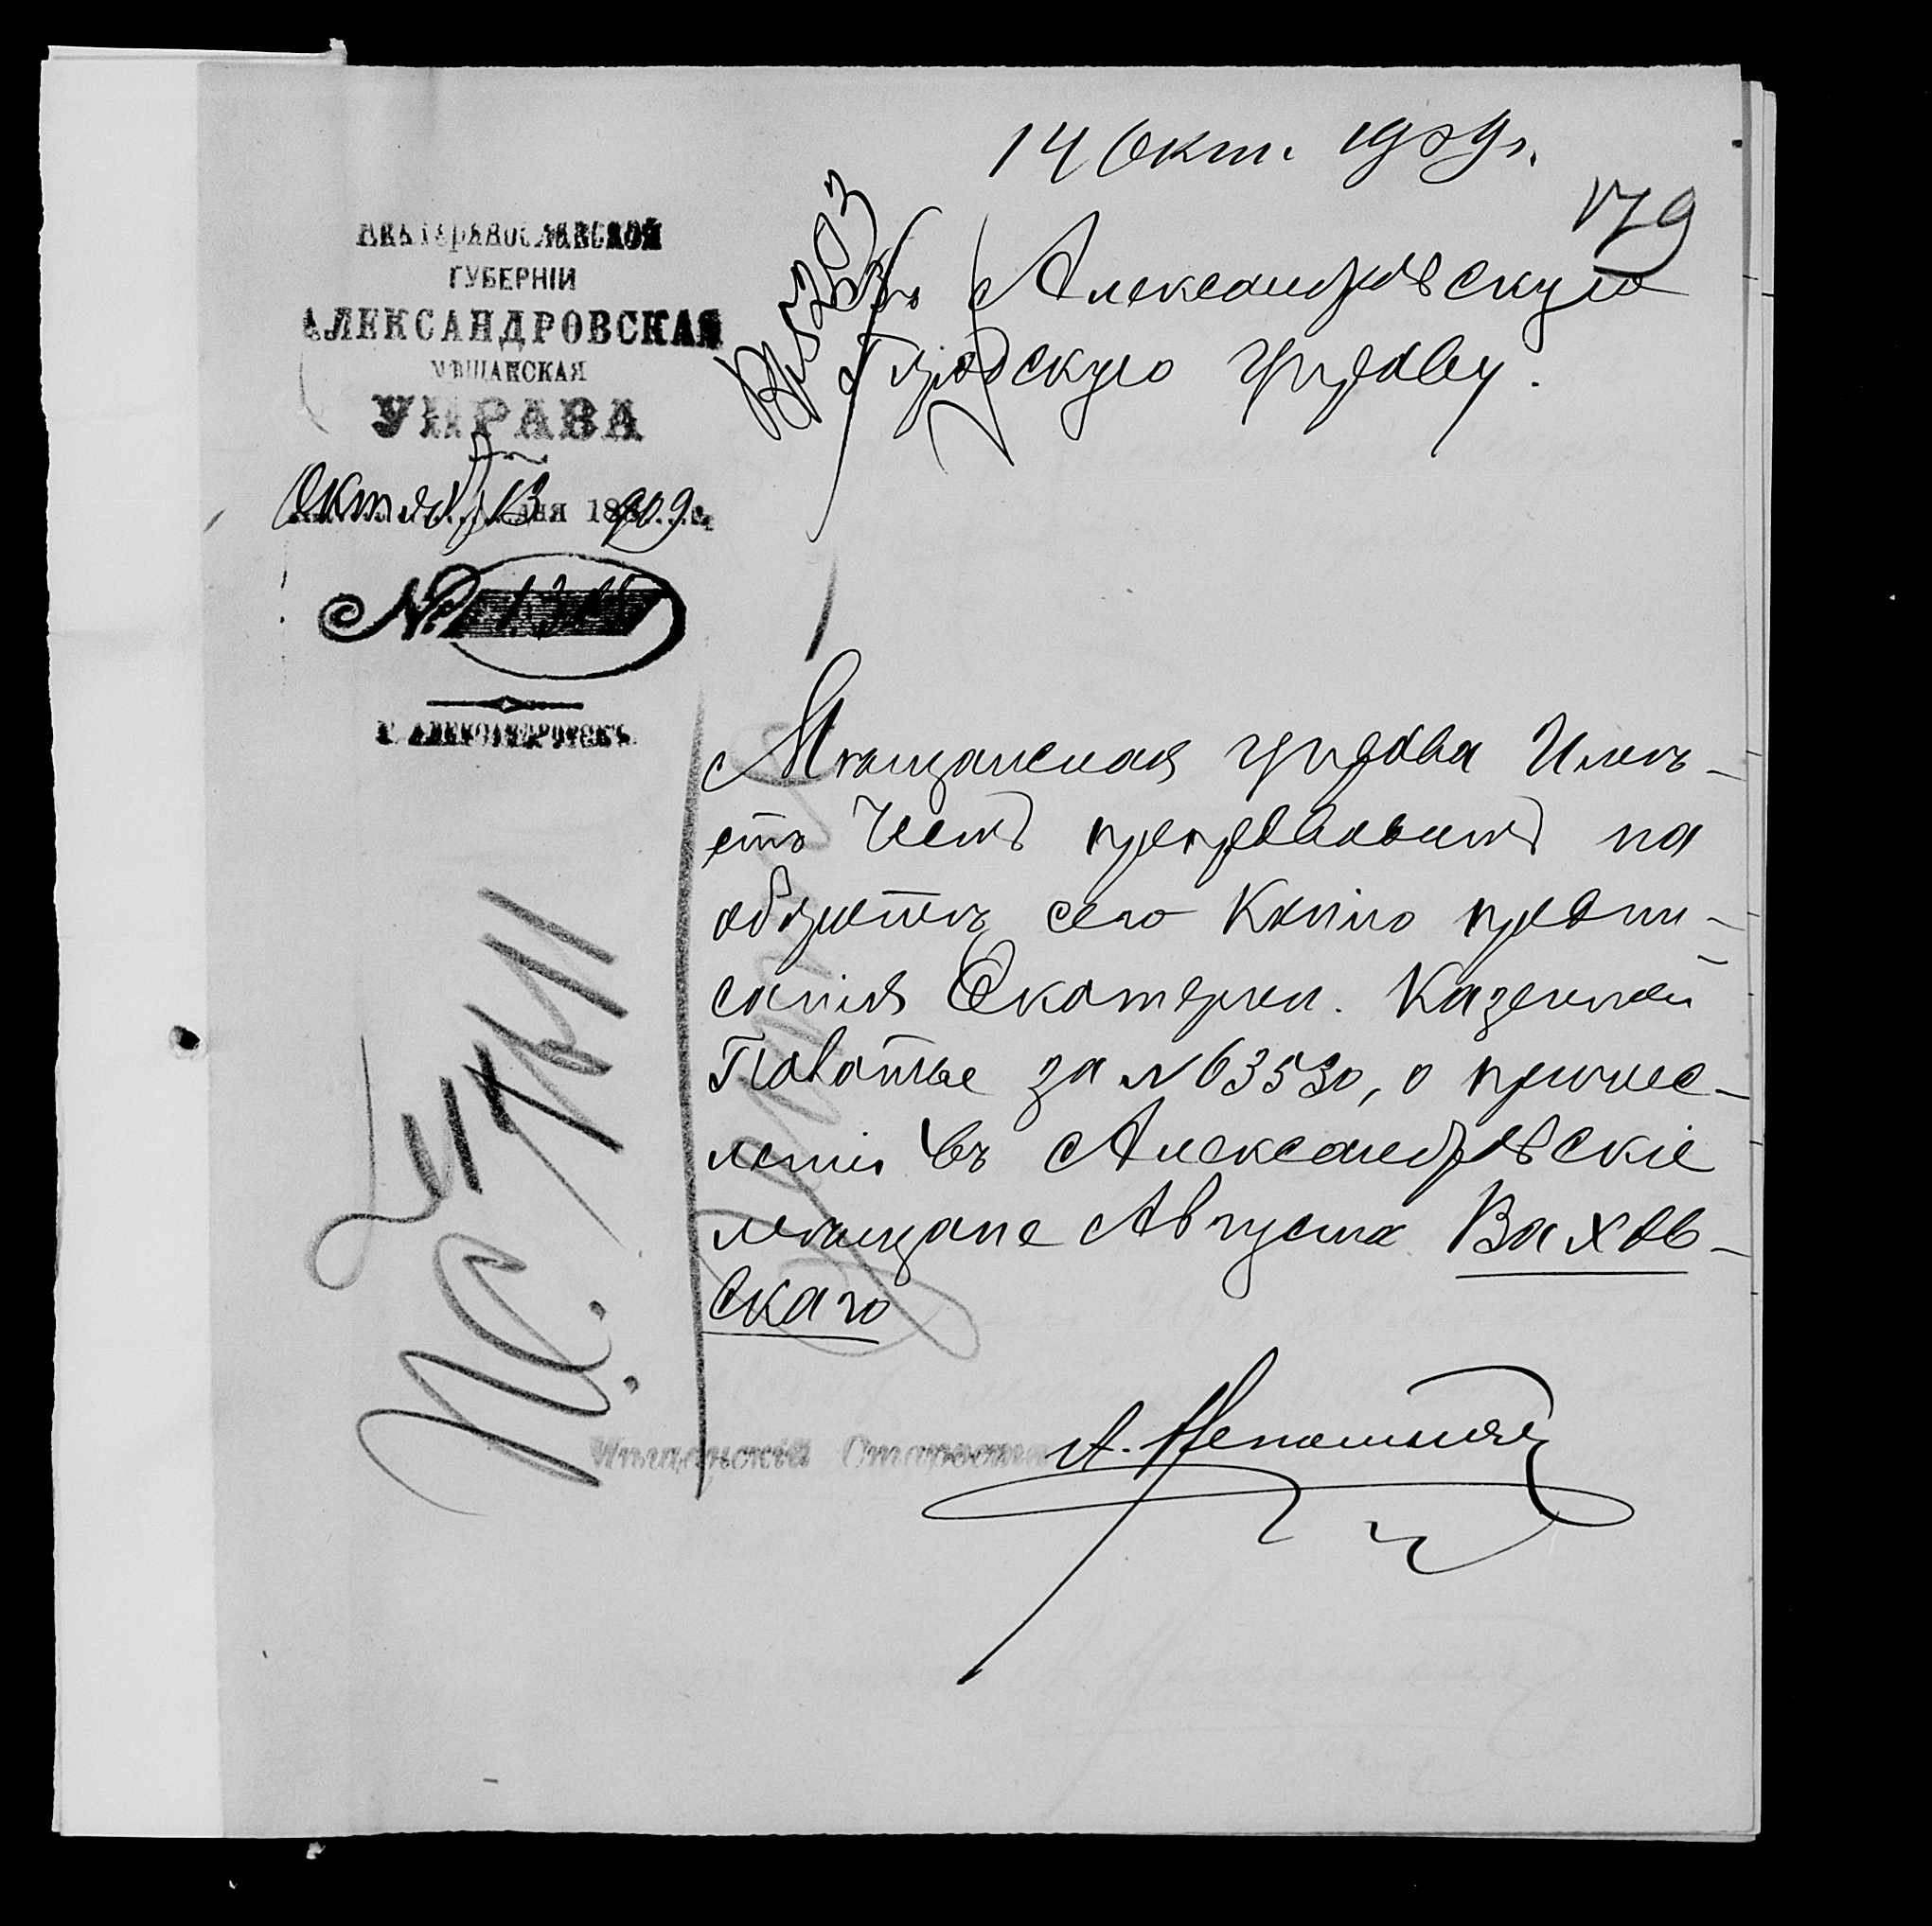 14 Окт. 1909 г.
179
ЕКАТЕРИНОСЛАВСКОЙ
ГУБЕРНІИ
АЛЕКСАНДРОВСКАЯ
МѢЩАНСКАЯ
УПРАВА
Октября 13 дня 1909 г.
№
Г. АЛЕКСАНДРОВСКЪ
Въ Александровскую
Городскую Управу.
Мѣщанская Управа имѣ-
етъ честь препроводить на
оборотѣ сего копію предпи-
санія Екатерин. Казенной
Палаты за № 63530, о причис-
леніи въ Александровскіе
мѣщане Августа Вахов-
скаго
Мѣщанскій Староста